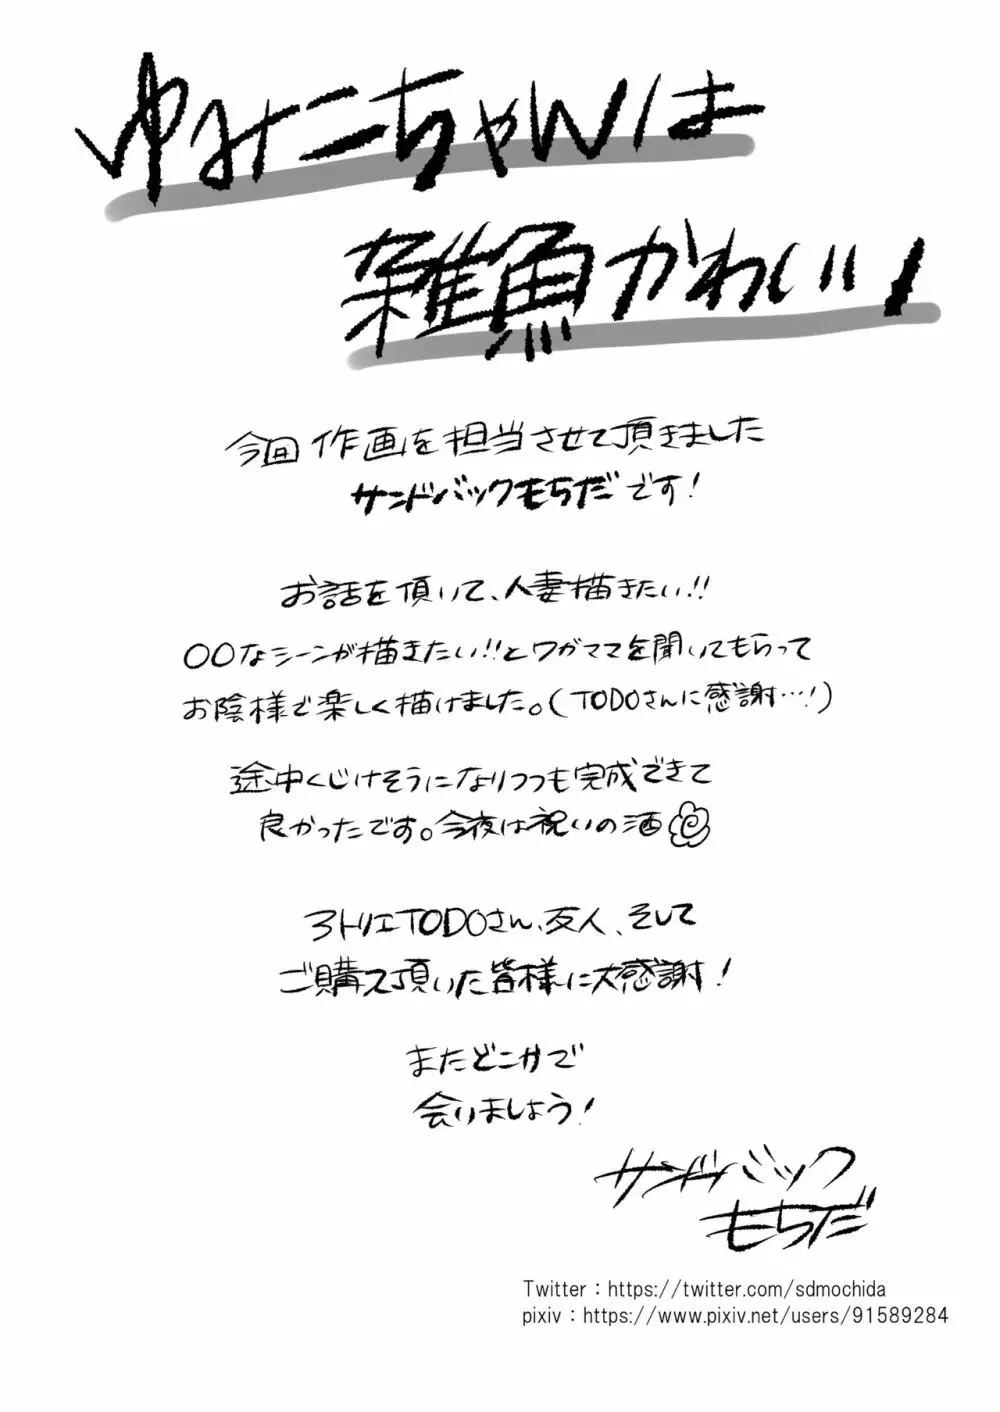 ゆみこちゃんは
雑魚かわいい！
今回作画を担当させて頂きました
サンドバックもちだです！
お話を頂いて、人妻描きたい!!
〇〇なシーンが描きたい!!とワガママを聞いてもらって
お陰様で楽しく描けました。(TODOさんに感謝…!)
途中くじけそうになりつつも完成できて
良かったです。今夜は祝いの酒
アトリエTODOさん、友人、そして
ご購入頂いた皆様に大感謝！
またどこかで
会いましょう！
サンドバック
もちだ
Twitter：https://twitter.com/sdmochida
pixiv：https://www.pixiv.net/users/91589284